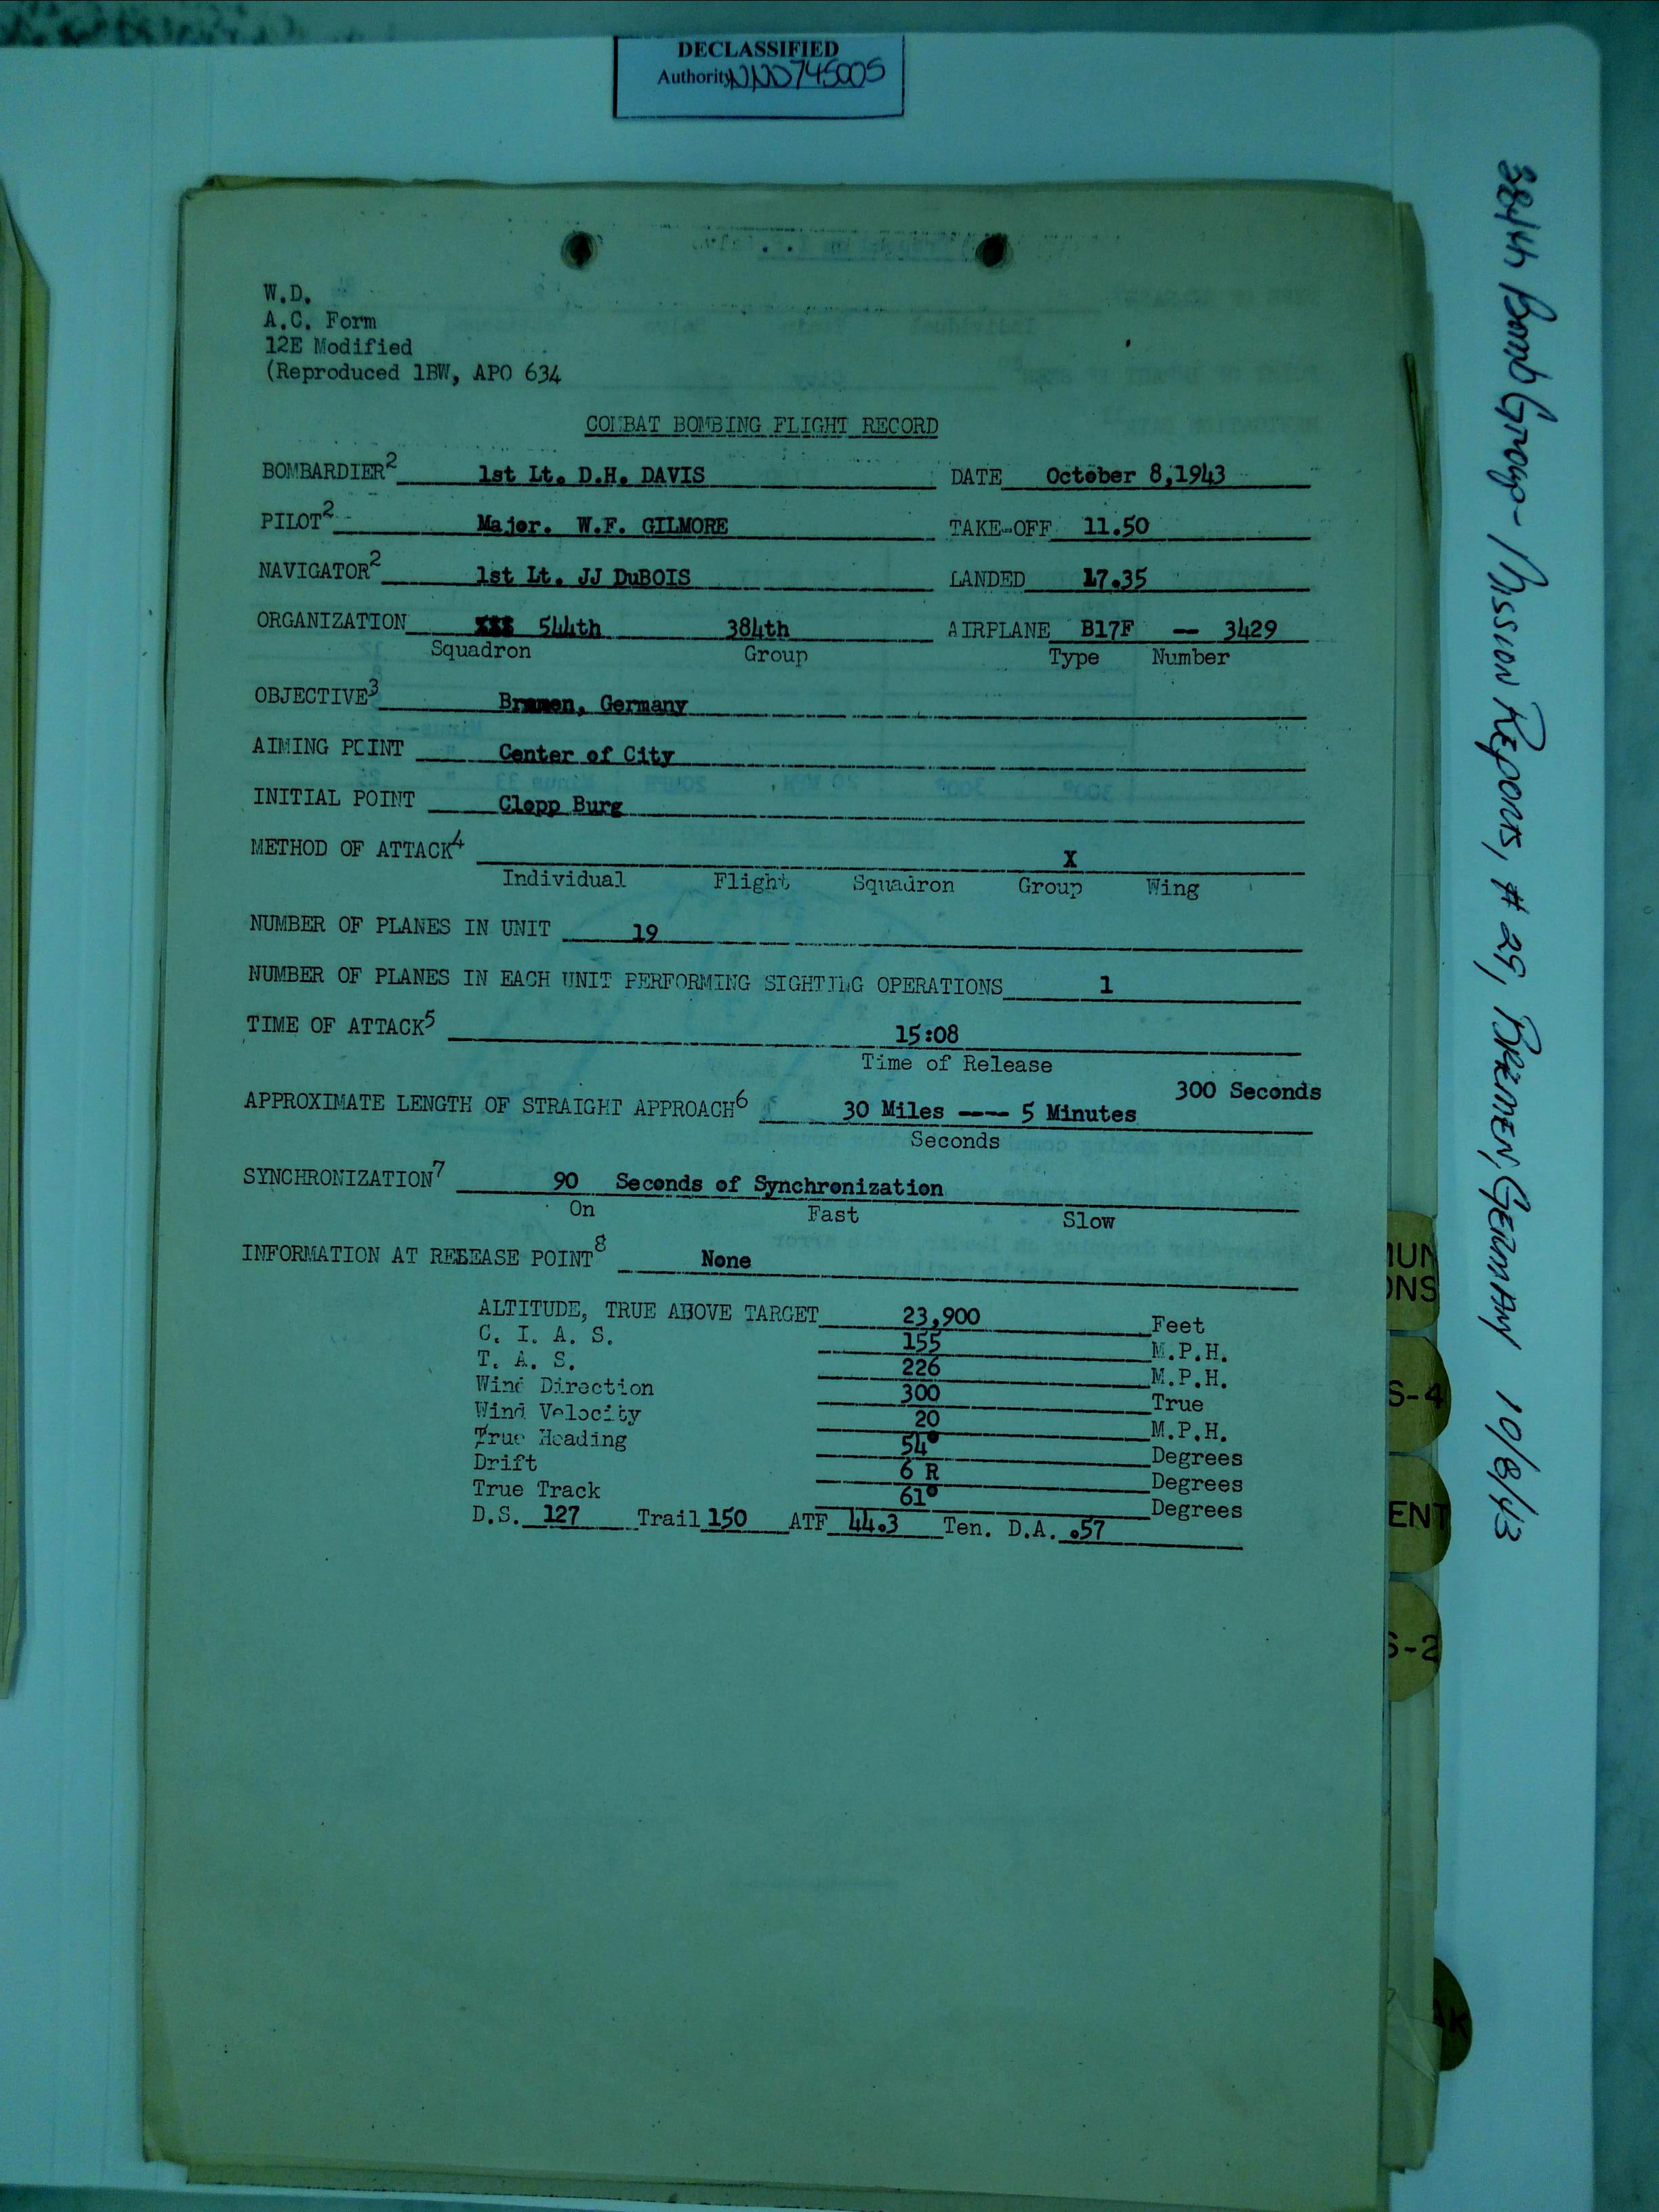 DECLASSIFIED
Authority NND 745005
W.D.
A.C. Form
12E Modified
(Reproduced 1BW, APO 634
COMBAT BOMBING FLIGHT RECORD
BOMBARDIER2 1st Lt. D.H. DAVIS DATE October 8,1943
PILOT2 Major. W.F. GILMORE TAKE-OFF 11.50
NAVIGATOR2 1st Lt. JJ DuBOIS LANDED 17.35
ORGANIZATION 544th 384th AIRPLANE B17F -- 3429
Squadron Group Type Number
OBJECTIVE3 Bremen, Germany
AIMING POINT Center of City
INITIAL POINT Clopp Burg
METHOD OF ATTACK4 X
Individual Flight Squadron Group Wing
NUMBER OF PLANES IN UNIT 19
NUMBER OF PLANES IN EACH UNIT PERFORMING SIGHTING OPERATIONS 1
TIME OF ATTACK5 15:08
Time of Release
300 Seconds
APPROXIMATE LENGTH OF STRAIGHT APPROACH6 30 Miles ---- 5 Minutes
Seconds
SYNCHRONIZATION7 90 Seconds of Synchronization
On Fast Slow
INFORMATION AT RELEASE POINT8 None
ALTITUDE, TRUE ABOVE TARGET 23,900 Feet
C. I. A. S. 155 M.P.H.
T. A. S. 226 M.P.H.
Wind Direction 300 True
Wind Velocity 20 M.P.H.
True Heading 54° Degrees
Drift 6 R Degrees
True Track 61° Degrees
D.S. 127 Trail 150 ATF 44.3 Ten. D.A. .57
384th Bomb Group - Mission Reports, # 29, BREMEN, GERMANY 10/8/43
S-4
S-2